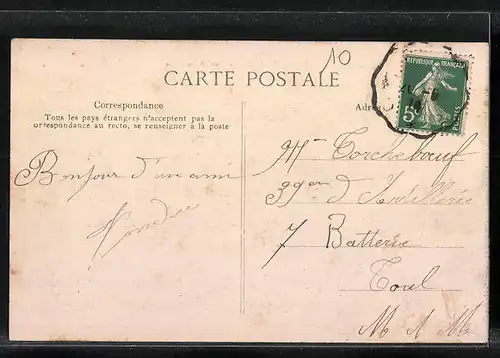 10
CARTE POSTALE
REPUBLIQUE FRANÇAISE
POSTES
5c
Correspondance
Tous les pays étrangers n'acceptent pas la
orrespondance au recto, se renseigner à la poste
Adre
Bonjour d'un ami
Mr Torchebœuf
39em d'Artillerie
7 Batterie
Toul
M M M